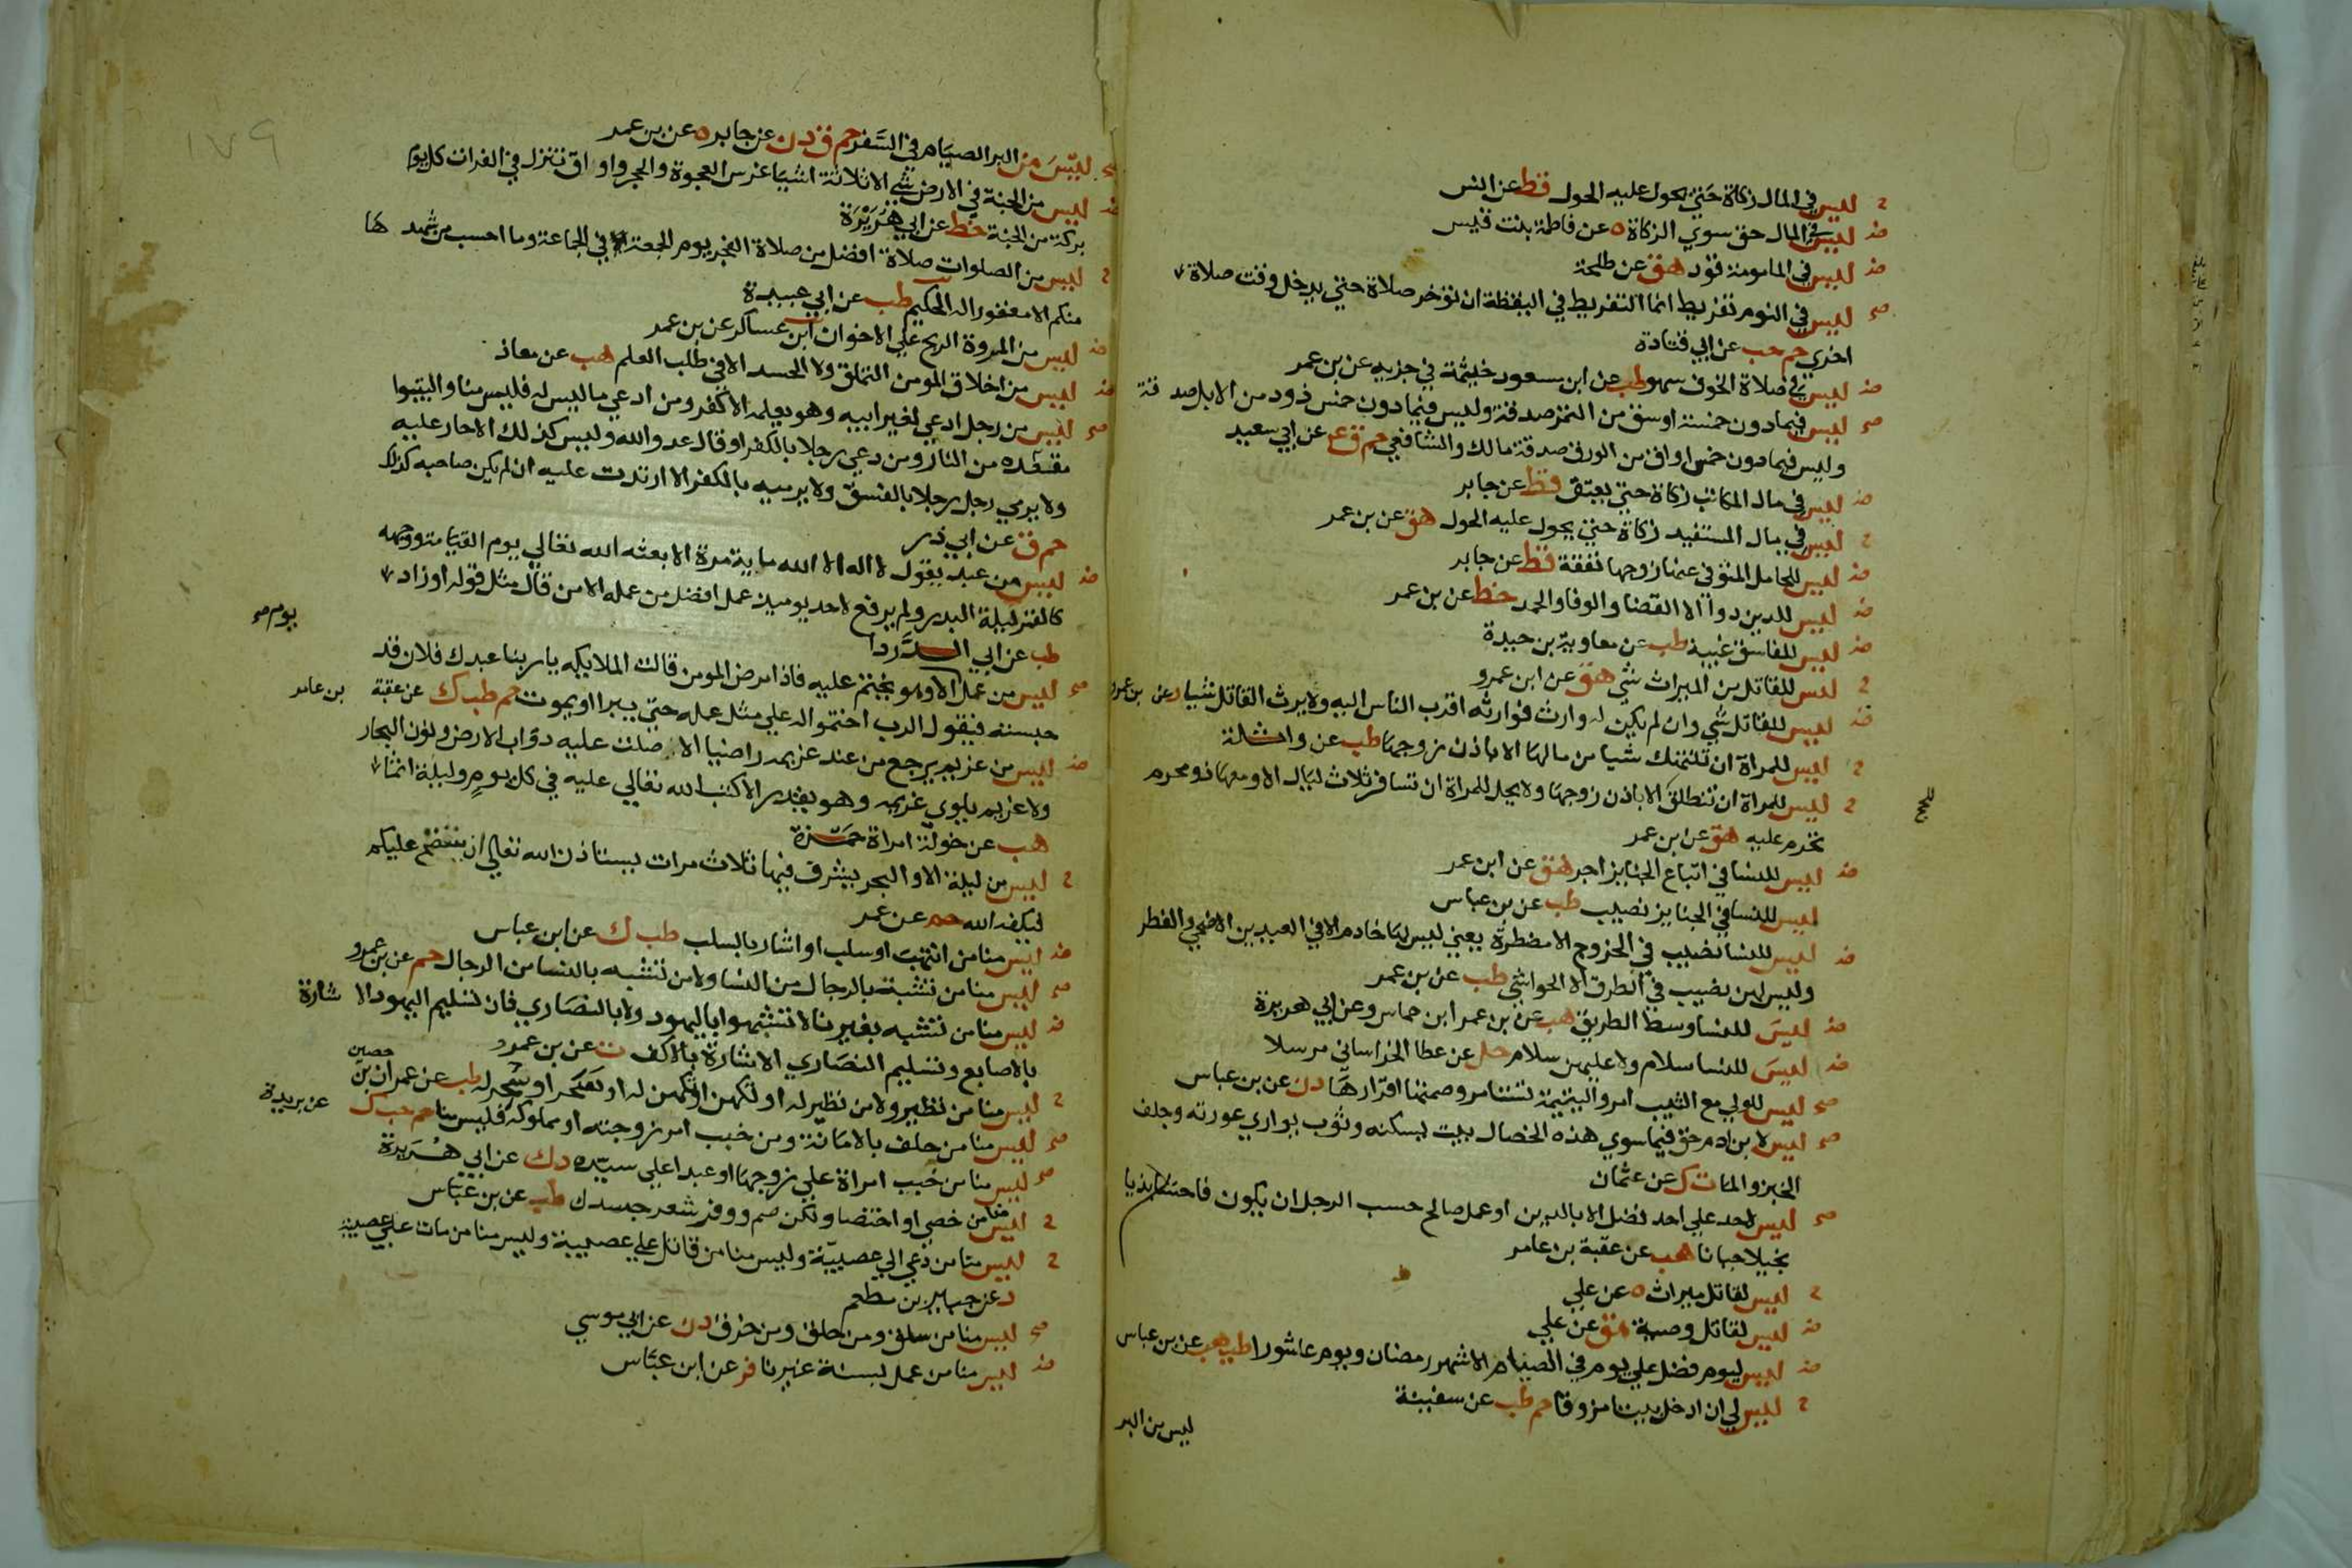 ح ليس في المال زكاة حتي يحول عليه الحول قط عن انس
ض ليس في المال حق سوي الزكاة ه عن فاطمة بنت قيس
ض ليس في المامومة قود هق عن طلحة
صح ليس في النوم تفريط انما التفريط في اليقظة ان تؤخر صلاة حتي يدخل وقت صلاة
اخري حم حب عن ابي قتادة
ض ليس في صلاة الخوف سهو طب عن ابن مسعود خيثمة في جزيه عن بن عمر
صح ليس فيما دون خمسة اوسق من التمر صدقة وليس فيما دون خمس ذود من الابل صدقة
وليس فيما دون خمس اواق من الورق صدقة مالك والشافعي حم ق ع عن ابي سعيد
ض ليس في مال المكاتب زكاة حتي يعتق قط عن جابر
ح ليس في مال المستفيد زكاة حتي يحول عليه الحول هق عن بن عمر
ض ليس للحامل المتوفي عنها زوجها نفقة قط عن جابر
ض ليس للدين دوا الا القضا والوفا والحمد خط عن بن عمر
ض ليس للفاسق غيبة طب عن معاوية بن حيدة
ح ليس للقاتل من الميراث شي هق عن ابن عمرو
ض ليس للقاتل شي وان لم يكن له وارث فوارثه اقرب الناس اليه ولا يرث القاتل شيا د عن بن عمرو
ح ليس للمراة ان تنتهك شيا من مالها الا باذن زوجها طب عن واثلة
ح ليس للمراة ان تنطلق الا باذن زوجها ولا يحل للمراة ان تسافر ثلاث ليال الا ومعها ذو محرم
للحج
تحرم عليه هق عن ابن عمر
ض ليس للنسا في اتباع الجنايز اجر هق عن ابن عمر
ليس للنسا في الجنايز نصيب طب عن بن عباس
ض ليس للنسا نصيب في الخروج الا مضطرة يعني ليس لها خادم الا في العيدين الاضحي والفطر
وليس لهن نصيب في الطرق الا الحواشي طب عن بن عمر
ض ليس للنسا وسط الطريق هب عن بن عمر ابن حماس وعن ابي هريرة
ض ليس للنسا سلام ولا عليهن سلام حل عن عطا الخراساني مرسلا
صح ليس للولي مع الثيب امر واليتيمة تستامر وصمتها اقرارها د ن عن بن عباس
صح ليس لابن ادم حق فيما سوي هذه الخصال بيت يسكنه وثوب يواري عورته وجلف
الخبز والما ت ك عن عثمان
صح ليس لاحد علي احد فضل الا بالدين او عمل صالح حسب الرجل ان يكون فاحشا بذيا
بخيلا جبانا هب عن عقبة بن عامر
ح ليس لقاتل ميراث ه عن علي
ض ليس لقاتل وصية هق عن علي
ض ليس ليوم فضل علي يوم في الصيام الا شهر رمضان ويوم عاشورا طب هب عن بن عباس
ح ليس لي ان ادخل بيتا مزوقا حم طب عن سفينة
ليس من البر
١٧٩
صح ليس من البر الصيام في السفر حم ق د ن عن جابر ه عن بن عمر
ض ليس من الجنة في الارض شي الا ثلاثة اشيا غرس العجوة والحجر واواق تنزل في الفرات كل يوم
بركة من الجنة خط عن ابي هريرة
ح ليس من الصلوات صلاة افضل من صلاة الفجر يوم الجمعة في الجماعة وما احسب من شهدها
منكم الا مغفورا له الحكيم طب عن ابي عبيدة
ض ليس من المروة الربح علي الاخوان ابن عساكر عن بن عمر
ض ليس من اخلاق المومن التملق ولا الحسد الا في طلب العلم هب عن معاذ
صح ليس من رجل ادعي لغير ابيه وهو يعلمه الا كفر ومن ادعي ما ليس له فليس منا وليتبوا
مقعده من النار ومن دعي رجلا بالكفر او قال عدو الله وليس كذلك الا حار عليه
ولا يرمي رجل رجلا بالفسق ولا يرميه بالكفر الا ارتدت عليه ان لم يكن صاحبه كذلك
حم ق عن ابي ذر
ض ليس من عبد يقول لا اله الا الله ماية مرة الا بعثه الله تعالي يوم القيامة ووجهه
كالقمر ليلة البدر ولم يرفع لاحد يوميذ عمل افضل من عمله الا من قال مثل قوله او زاد
طب عن ابي الدردا
يوم صح
صح ليس من عمل الا وهو يختم عليه فاذا مرض المومن قالت الملايكة يا ربنا عبدك فلان قد
حبسته فيقول الرب اختموا له علي مثل عمله حتي يبرا او يموت حم طب ك عن عقبة بن عامر
ض ليس من غريم يرجع من عند غريمه راضيا الا صلت عليه دواب الارض ونون البحار
ولا غريم يلوي غريمه وهو يقدر الا كتب الله تعالي عليه في كل يوم وليلة اثما
هب عن خولة امراة حمزة
ح ليس من ليلة الا والبحر يشرف فيها ثلاث مرات يستاذن الله تعالي ان ينفضح عليكم
فيكفه الله حم عن عمر
ض ليس منا من انتهب او سلب او اشار بالسلب طب ك عن ابن عباس
صح ليس منا من تشبه بالرجال من النسا ولا من تشبه بالنسا من الرجال حم عن بن عمرو
ض ليس منا من تشبه بغيرنا لا تشبهوا باليهود ولا بالنصاري فان تسليم اليهود الاشارة
بالاصابع وتسليم النصاري الاشارة بالاكف ت عن بن عمرو
ح ليس منا من تطير ولا من تطير له او تكهن او تكهن له او سحر او سحر له طب عن عمران بن حصين
صح ليس منا من حلف بالامانة ومن خبب امر زوجته او مملوكه فليس منا حم حب ك عن بريدة
صح ليس منا من خبب امراة علي زوجها او عبدا علي سيده د ك عن ابي هريرة
ح ليس منا من خصي او اختصا ولكن صم ووفر شعر جسدك طب عن بن عباس
ح ليس منا من دعي الي عصبية وليس منا من قاتل علي عصبية وليس منا من مات علي عصبية
د عن جبير بن مطعم
صح ليس منا من سلق ومن حلق ومن خرق د ن عن ابي موسي
ض ليس منا من عمل بسنة غيرنا فر عن ابن عباس